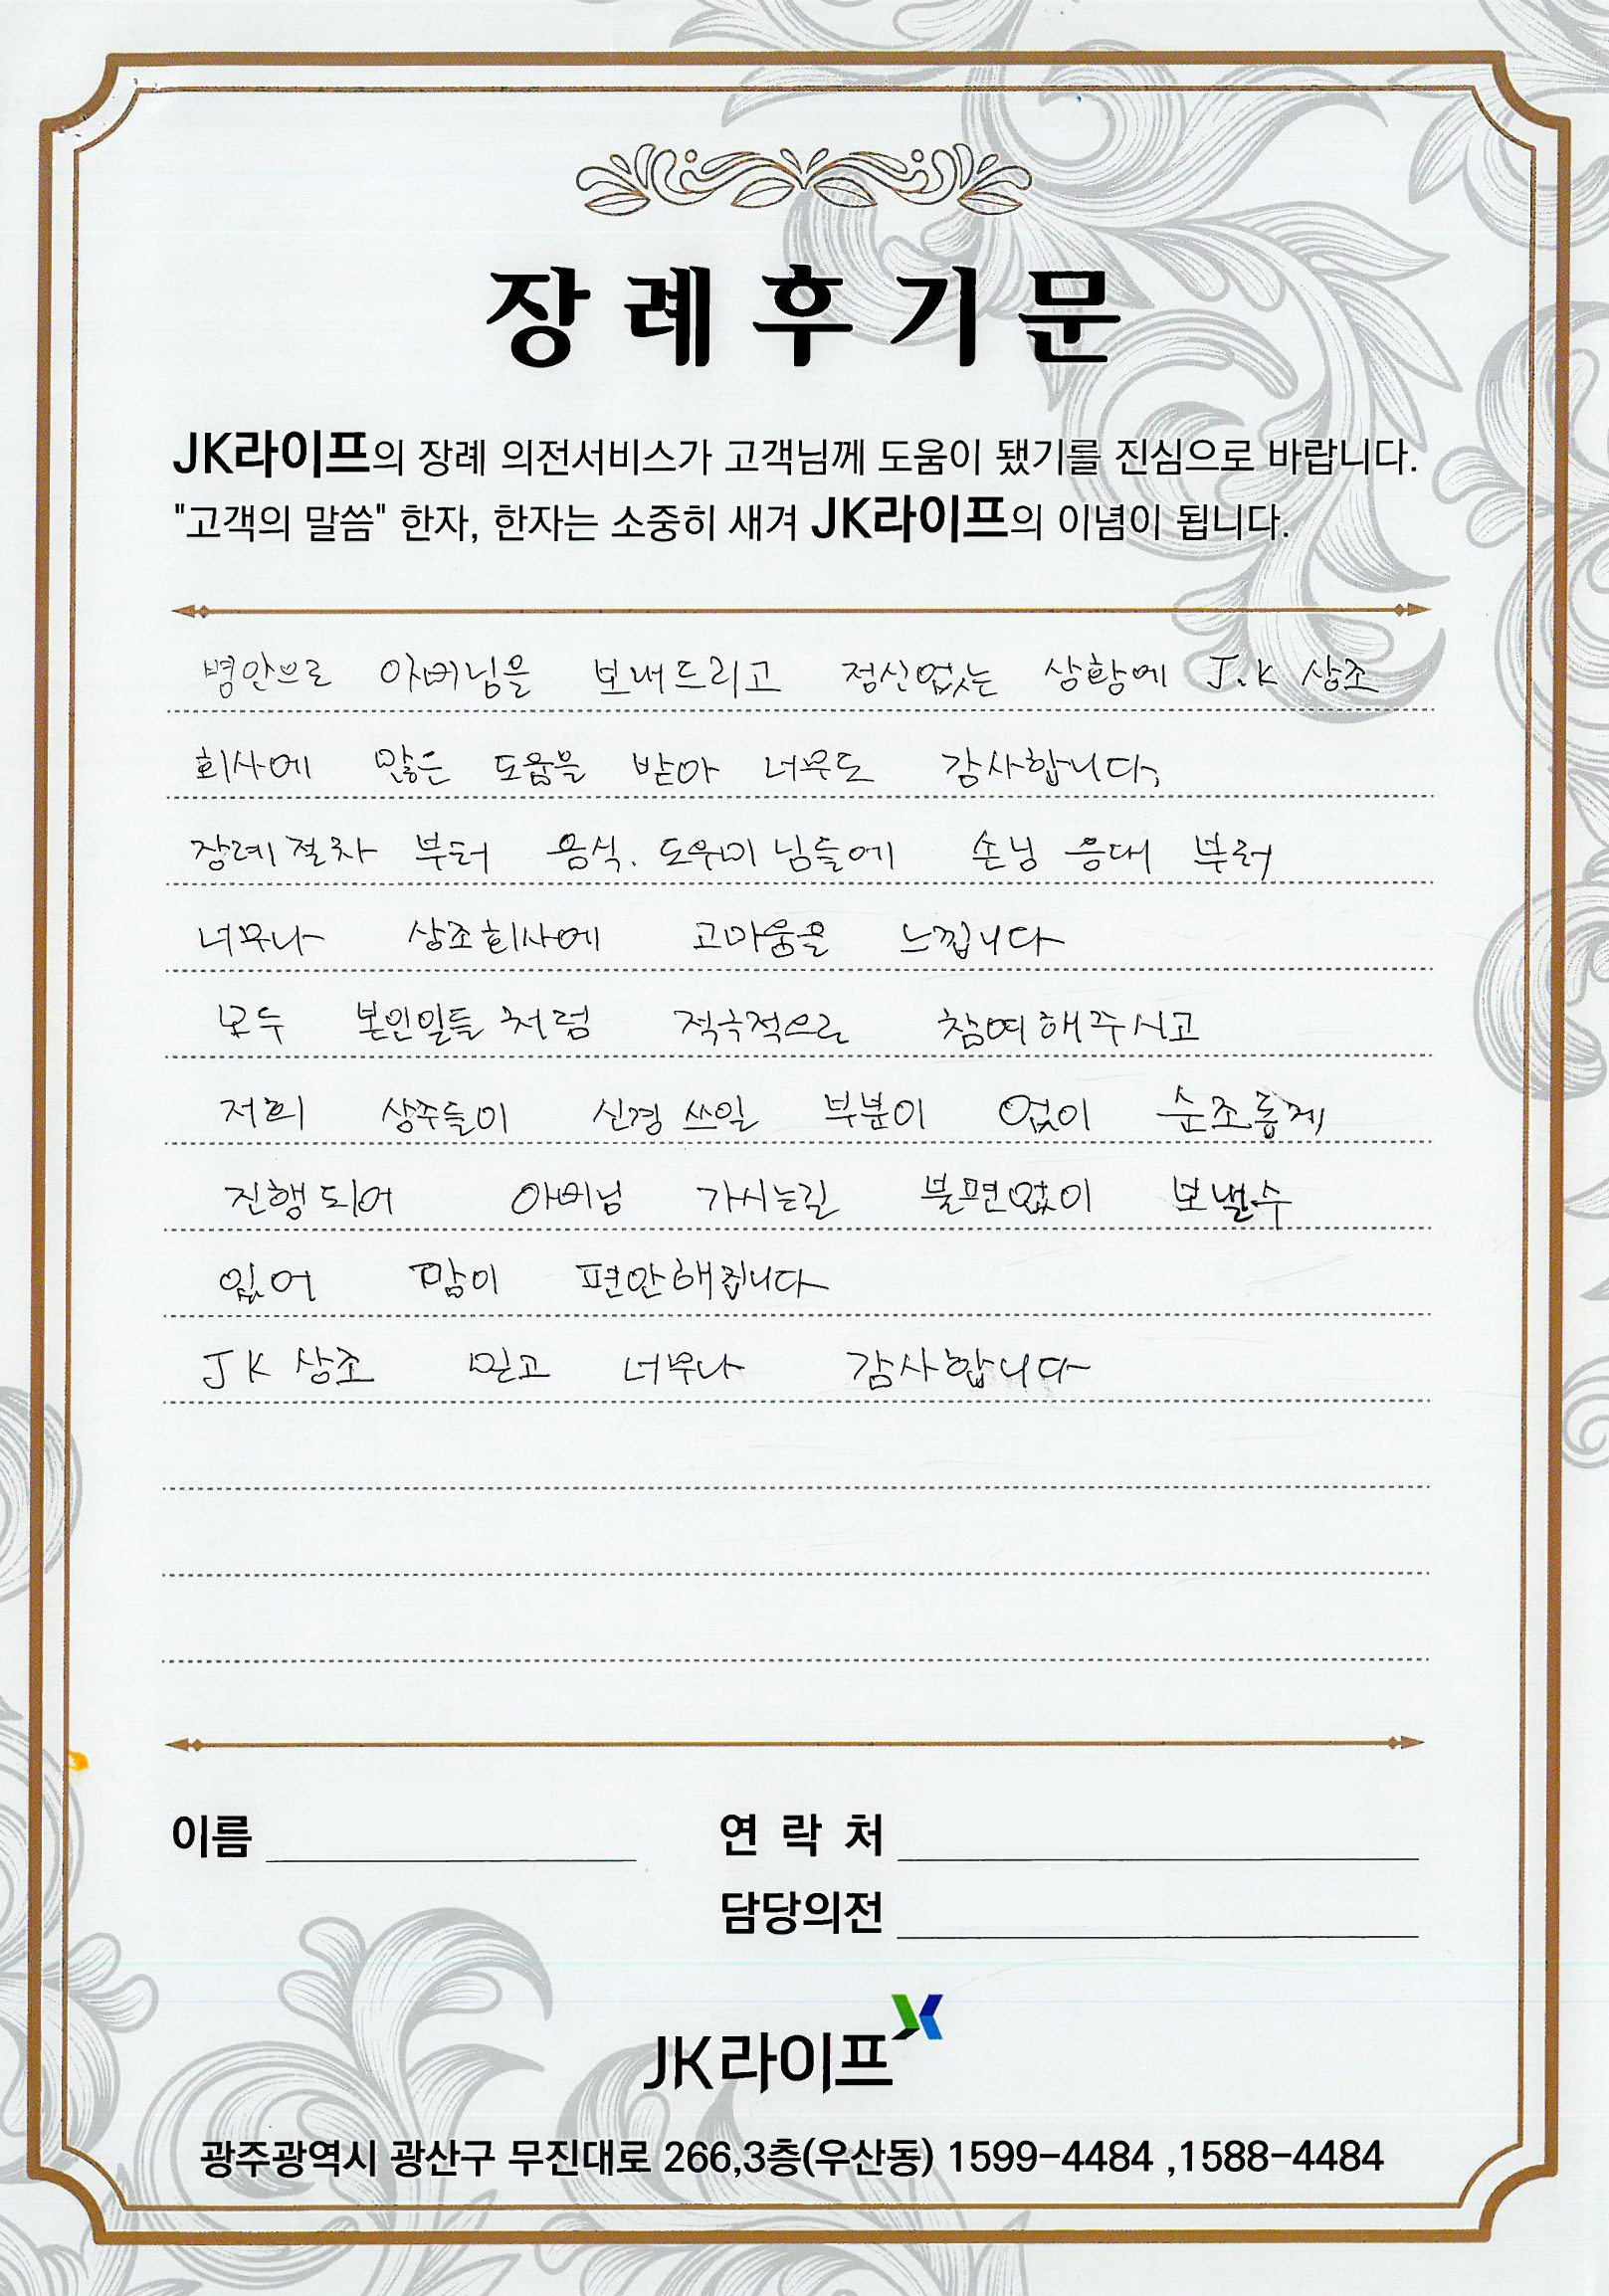 장례후기문
JK라이프의 장례 의전서비스가 고객님께 도움이 됐기를 진심으로 바랍니다.
"고객의 말씀" 한자, 한자는 소중히 새겨 JK라이프의 이념이 됩니다.
병안으로 아버님을 보내드리고 정신없는 상황에 J.K 상조
회사에 많은 도움을 받아 너무도 감사합니다,
장례절차 부터 음식. 도우미 님들에 손님 응대 부터
너무나 상조회사에 고마움을 느낍니다
모두 본인일들 처럼 적극적으로 참여해주시고
저희 상주들이 신경 쓰일 부분이 없이 순조롭게
진행되어 아버님 가시는길 불편없이 보낼수
있어 맘이 편안해집니다
JK 상조 믿고 너무나 감사합니다
이름 연락처
담당의전
JK라이프
광주광역시 광산구 무진대로 266,3층(우산동) 1599-4484 ,1588-4484